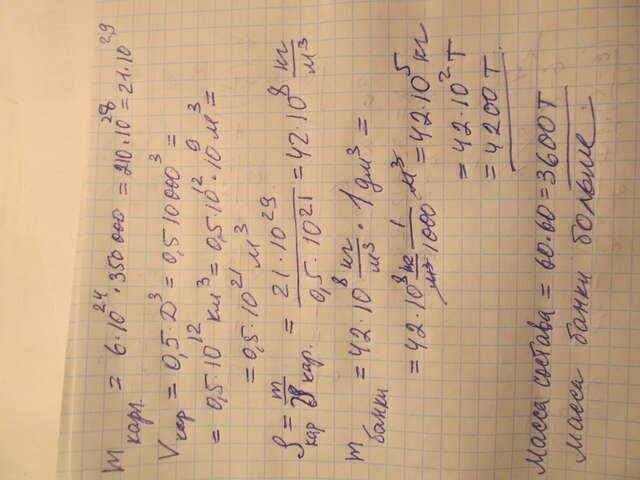 m карл. = 6·10²⁴·350 000 = 210·10²⁸ = 21·10²⁹
V кар = 0,5·D³ = 0,5 10 000³ =
= 0,5·10¹² км³ = 0,5·10¹²·10⁹ м³ =
= 0,5·10²¹ м³
ρ кар = m/V кар. = 21·10²⁹/0,5·10²¹ = 42·10⁸ кг/м³
m банки = 42·10⁸ кг/м³ · 1 дм³ =
= 42·10⁸ кг/м³ 1/1000 м³ = 42·10⁵ кг
= 42·10² т
= 4200 т.
Масса состава = 60·60 = 3600 т
Масса банки больше.